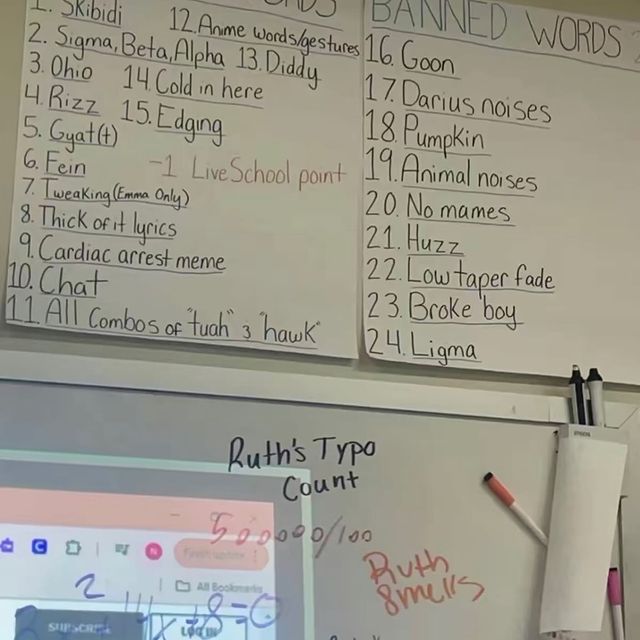 1. Skibidi
2. Sigma, Beta, Alpha
3. Ohio
4. Rizz
5. Gyat(t)
6. Fein
7. Tweaking (Emma Only)
8. Thick of it lyrics
9. Cardiac arrest meme
10. Chat
11. All Combos of "tuah" & "hawk"
12. Anime words/gestures
13. Diddy
14. Cold in here
15. Edging
-1 LiveSchool point
BANNED WORDS
16. Goon
17. Darius noises
18. Pumpkin
19. Animal noises
20. No mames
21. Huzz
22. Low taper fade
23. Broke boy
24. Ligma
Ruth's Typo
Count
500000/100
Ruth
Smells
Finish update
All Bookmarks
SUBSCRIBE
LOG IN